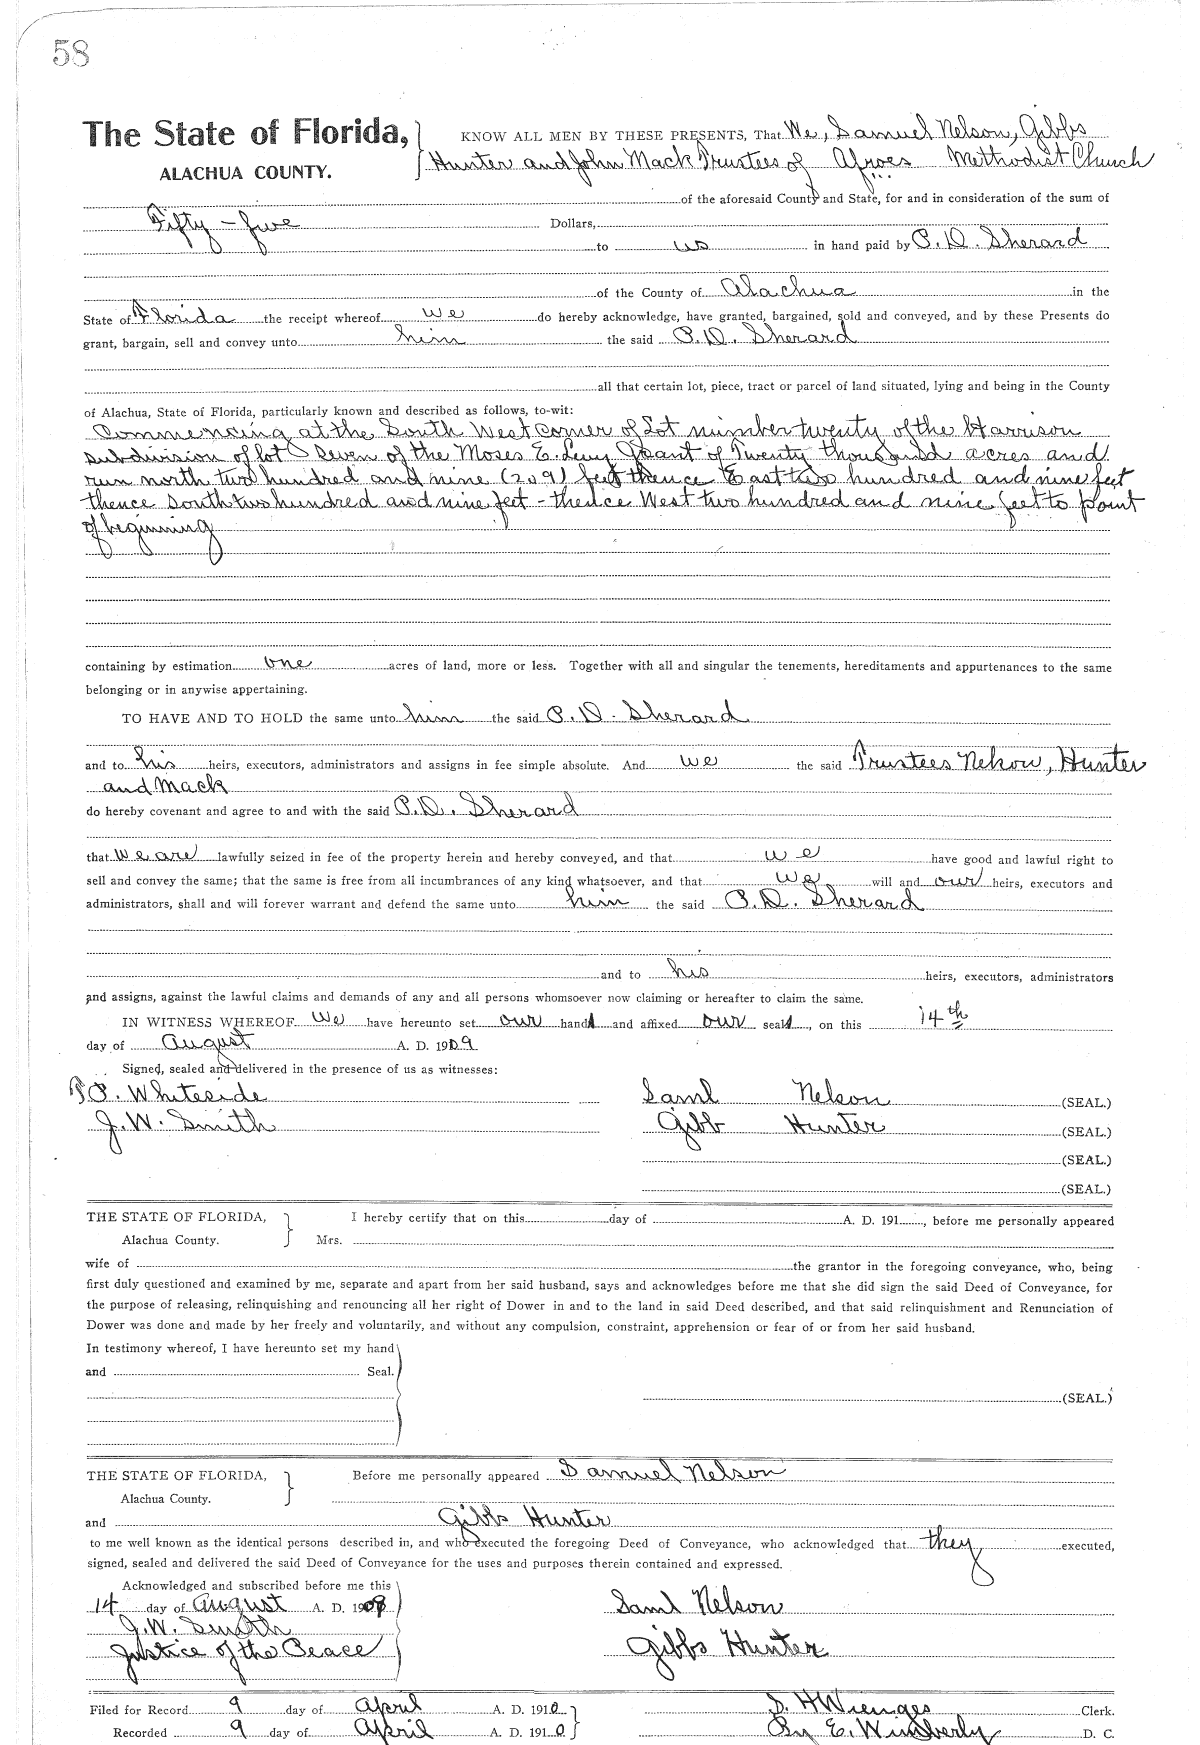 58
The State of Florida, KNOW ALL MEN BY THESE PRESENTS, That We, Samuel Nelson, Gibbs
ALACHUA COUNTY. Hunter and John Mack Trustees of Methodist Church
of the aforesaid County and State, for and in consideration of the sum of
Fifty-five Dollars,
to us in hand paid by P. D. Sherard
of the County of Alachua in the
State of Florida the receipt whereof we do hereby acknowledge, have granted, bargained, sold and conveyed, and by these Presents do
grant, bargain, sell and convey unto him the said P. D. Sherard
all that certain lot, piece, tract or parcel of land situated, lying and being in the County
of Alachua, State of Florida, particularly known and described as follows, to-wit:
Commencing at the South West Corner of Lot number twenty of the Harrison
subdivision of lot Seven of the Moses E. Levy Grant of Twenty thousand acres and
run north two hundred and nine (209) feet thence East two hundred and nine feet
thence South two hundred and nine feet - thence West two hundred and nine feet to point
of beginning
containing by estimation one acres of land, more or less. Together with all and singular the tenements, hereditaments and appurtenances to the same
belonging or in anywise appertaining.
TO HAVE AND TO HOLD the same unto him the said P. D. Sherard
and to his heirs, executors, administrators and assigns in fee simple absolute. And we the said Trustees Nelson, Hunter
and Mack
do hereby covenant and agree to and with the said P. D. Sherard
that we are lawfully seized in fee of the property herein and hereby conveyed, and that we have good and lawful right to
sell and convey the same; that the same is free from all incumbrances of any kind whatsoever, and that we will and our heirs, executors and
administrators, shall and will forever warrant and defend the same unto him the said P. D. Sherard
and to his heirs, executors, administrators
and assigns, against the lawful claims and demands of any and all persons whomsoever now claiming or hereafter to claim the same.
IN WITNESS WHEREOF We have hereunto set our hands and affixed our seals, on this 14th
day of August A. D. 1909
Signed, sealed and delivered in the presence of us as witnesses:
P. Whiteside Saml Nelson (SEAL.)
J. W. Smith Gibb Hunter (SEAL.)
(SEAL.)
(SEAL.)
THE STATE OF FLORIDA, I hereby certify that on this day of A. D. 191 , before me personally appeared
Alachua County. Mrs.
wife of the grantor in the foregoing conveyance, who, being
first duly questioned and examined by me, separate and apart from her said husband, says and acknowledges before me that she did sign the said Deed of Conveyance, for
the purpose of releasing, relinquishing and renouncing all her right of Dower in and to the land in said Deed described, and that said relinquishment and Renunciation of
Dower was done and made by her freely and voluntarily, and without any compulsion, constraint, apprehension or fear of or from her said husband.
In testimony whereof, I have hereunto set my hand
and Seal.
(SEAL.)
THE STATE OF FLORIDA, Before me personally appeared Samuel Nelson
Alachua County.
and Gibbs Hunter
to me well known as the identical persons described in, and who executed the foregoing Deed of Conveyance, who acknowledged that they executed,
signed, sealed and delivered the said Deed of Conveyance for the uses and purposes therein contained and expressed.
Acknowledged and subscribed before me this
14 day of August A. D. 1909 Saml Nelson
J. W. Smith
Justice of the Peace Gibbs Hunter
Filed for Record 9 day of April A. D. 1910 S. H Wienges Clerk.
Recorded 9 day of April A. D. 1910 By E. Wimberly D. C.